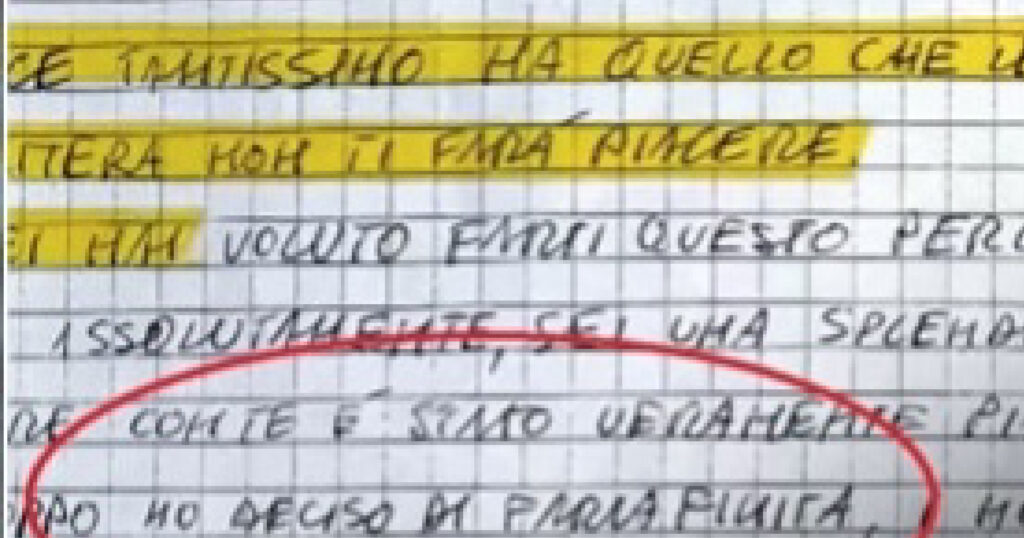 CE TANTISSIMO MA QUELLO CHE
TTERA NON TI FARÁ PIACERE.
EI MAI VOLUTO FARTI QUESTO PERC
ASSOLUTAMENTE, SEI UNA SPLEND
RE CON TE É STATO VERAMENTE PI
OPPO HO DECISO DI FARLA FINITA, HO